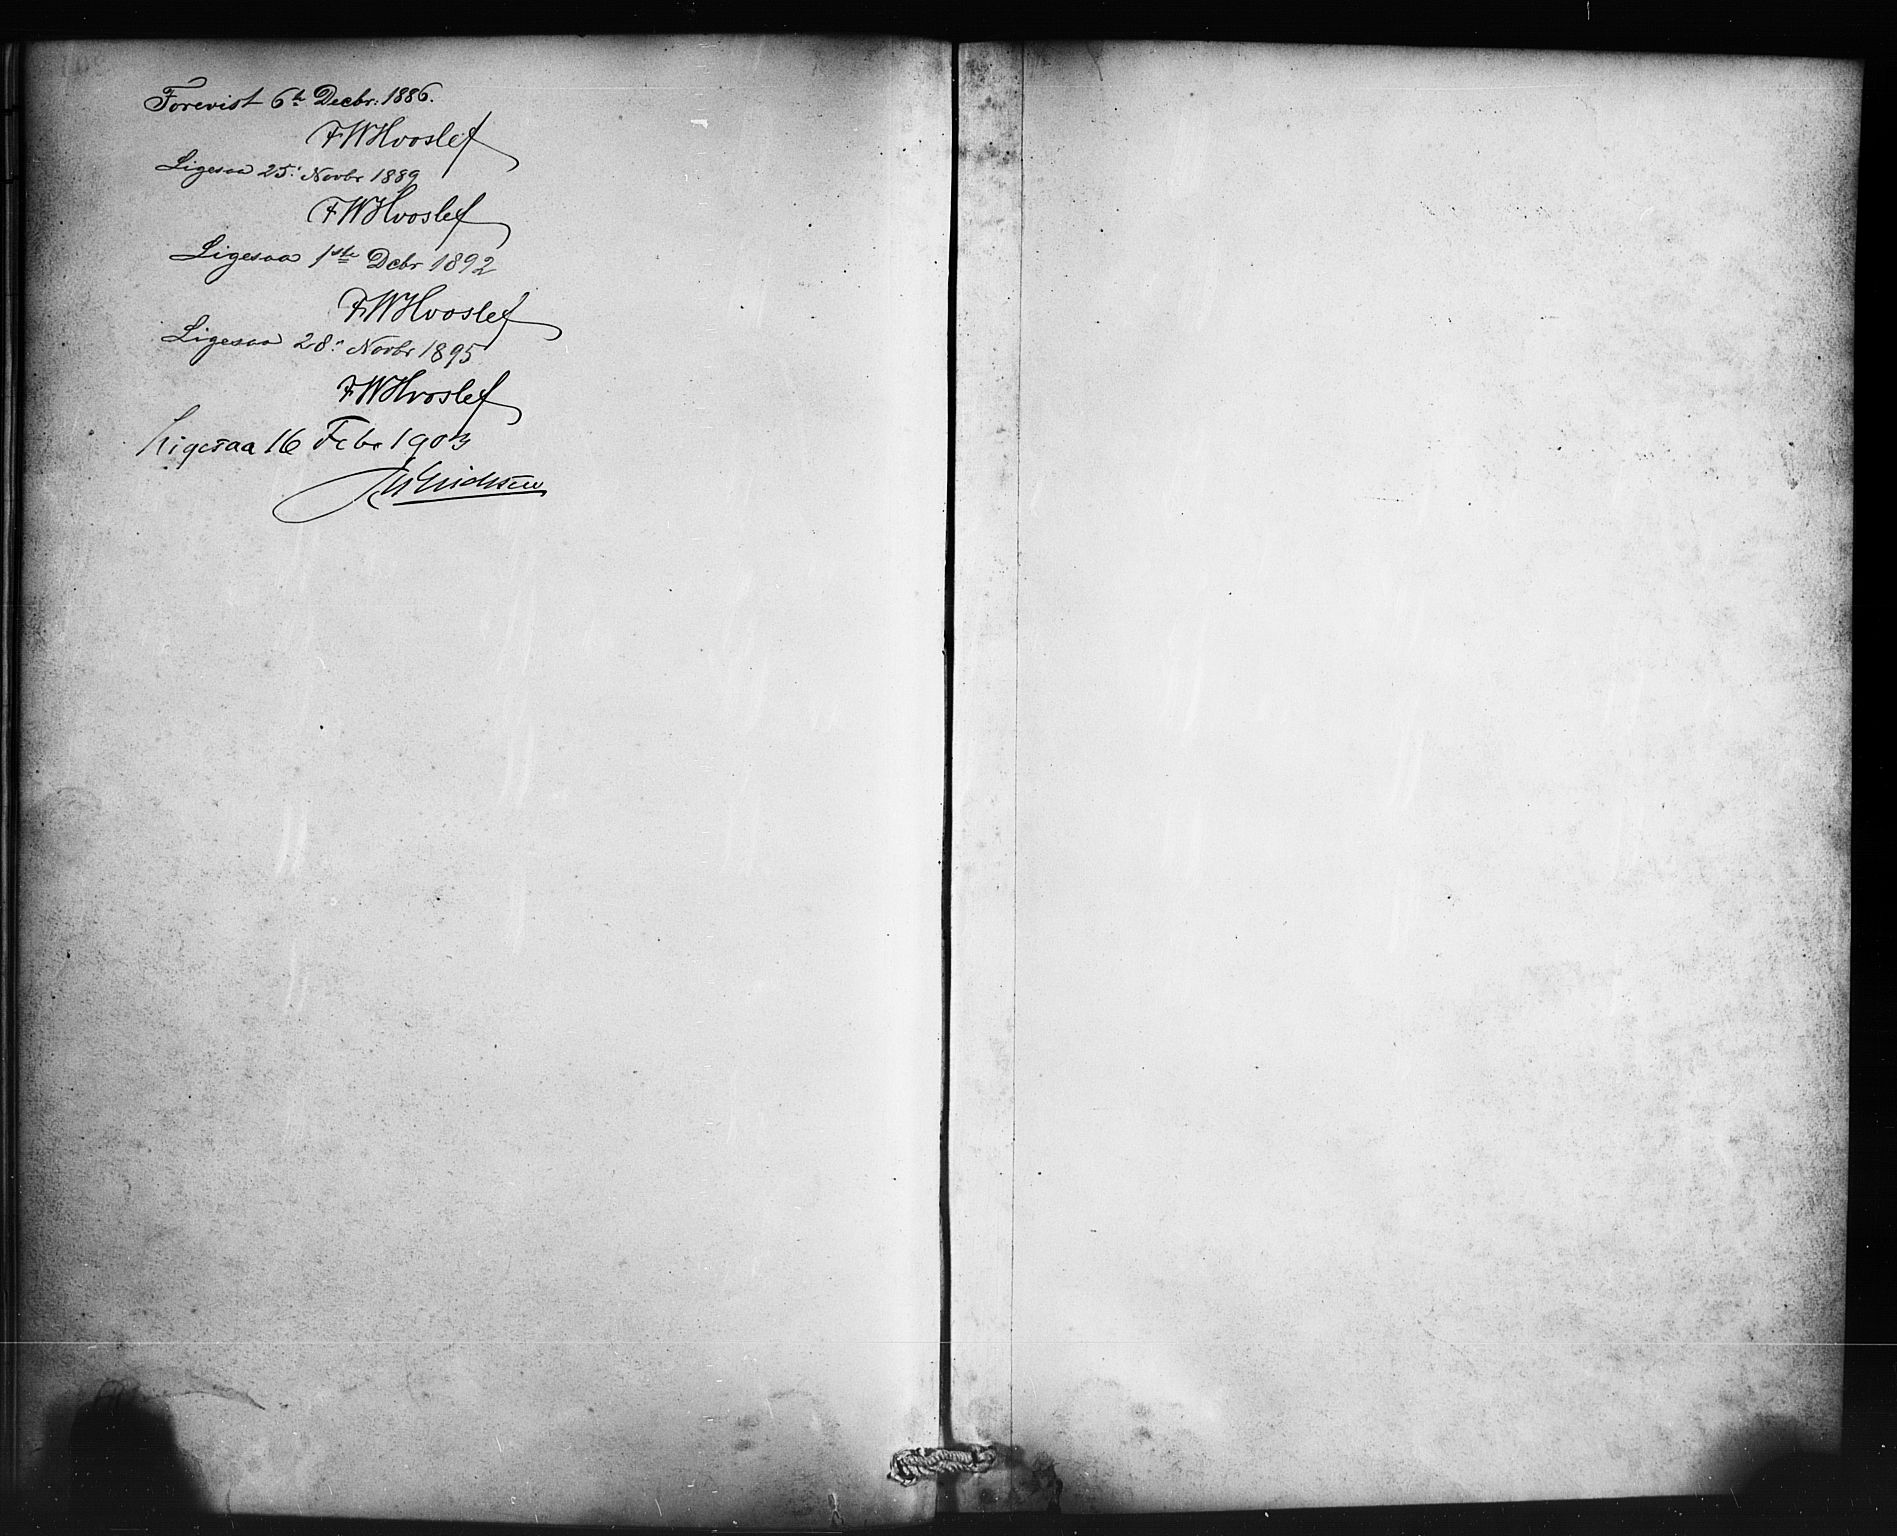 Forevist 6te Decbr: 1886.
FWHvoslef
Ligesaa 25: Novbr 1889
FWHvoslef
Ligesaa 1ste Dcbr 1892
FWHvoslef
Ligesaa 28: Novbr 1895
FWHvoslef
Ligesaa 16 Febr 1903